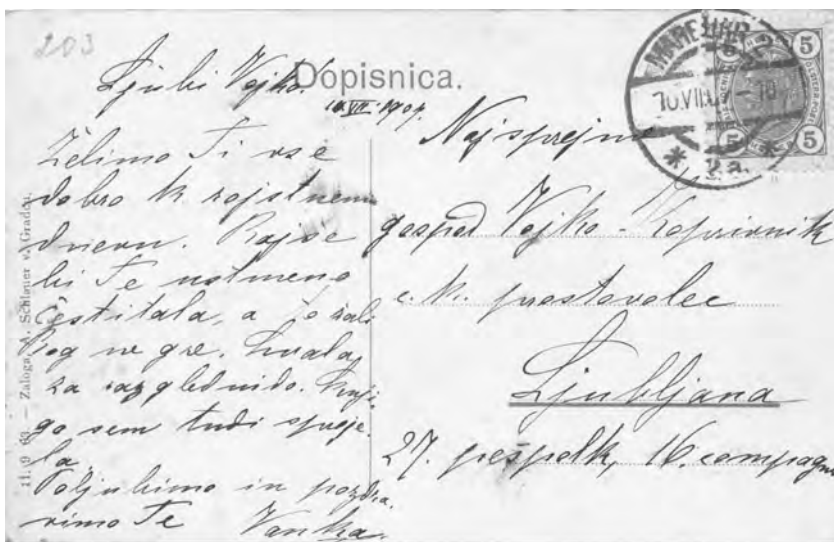 203
Dopisnica.
Ljubi Vojko!
10.VII.1907.
Želimo Ti vse
dobro k rojstnemu
dnevu. Rajše
bi Te ustmeno
čestitala, a žo žali
Bog ne gre. Hvala
za razglednido. Knji-
go sem tudi spreje-
la.
Poljubimo in pozdra-
vimo Te Vanka.
11. 9 63 — Zaloga A. Schlauer v Gradcu.
gospod Vojko Koprivnik
c. k. prostovolec
Ljubljana
27. pešpolk, 16. compagn
5 5
5 5